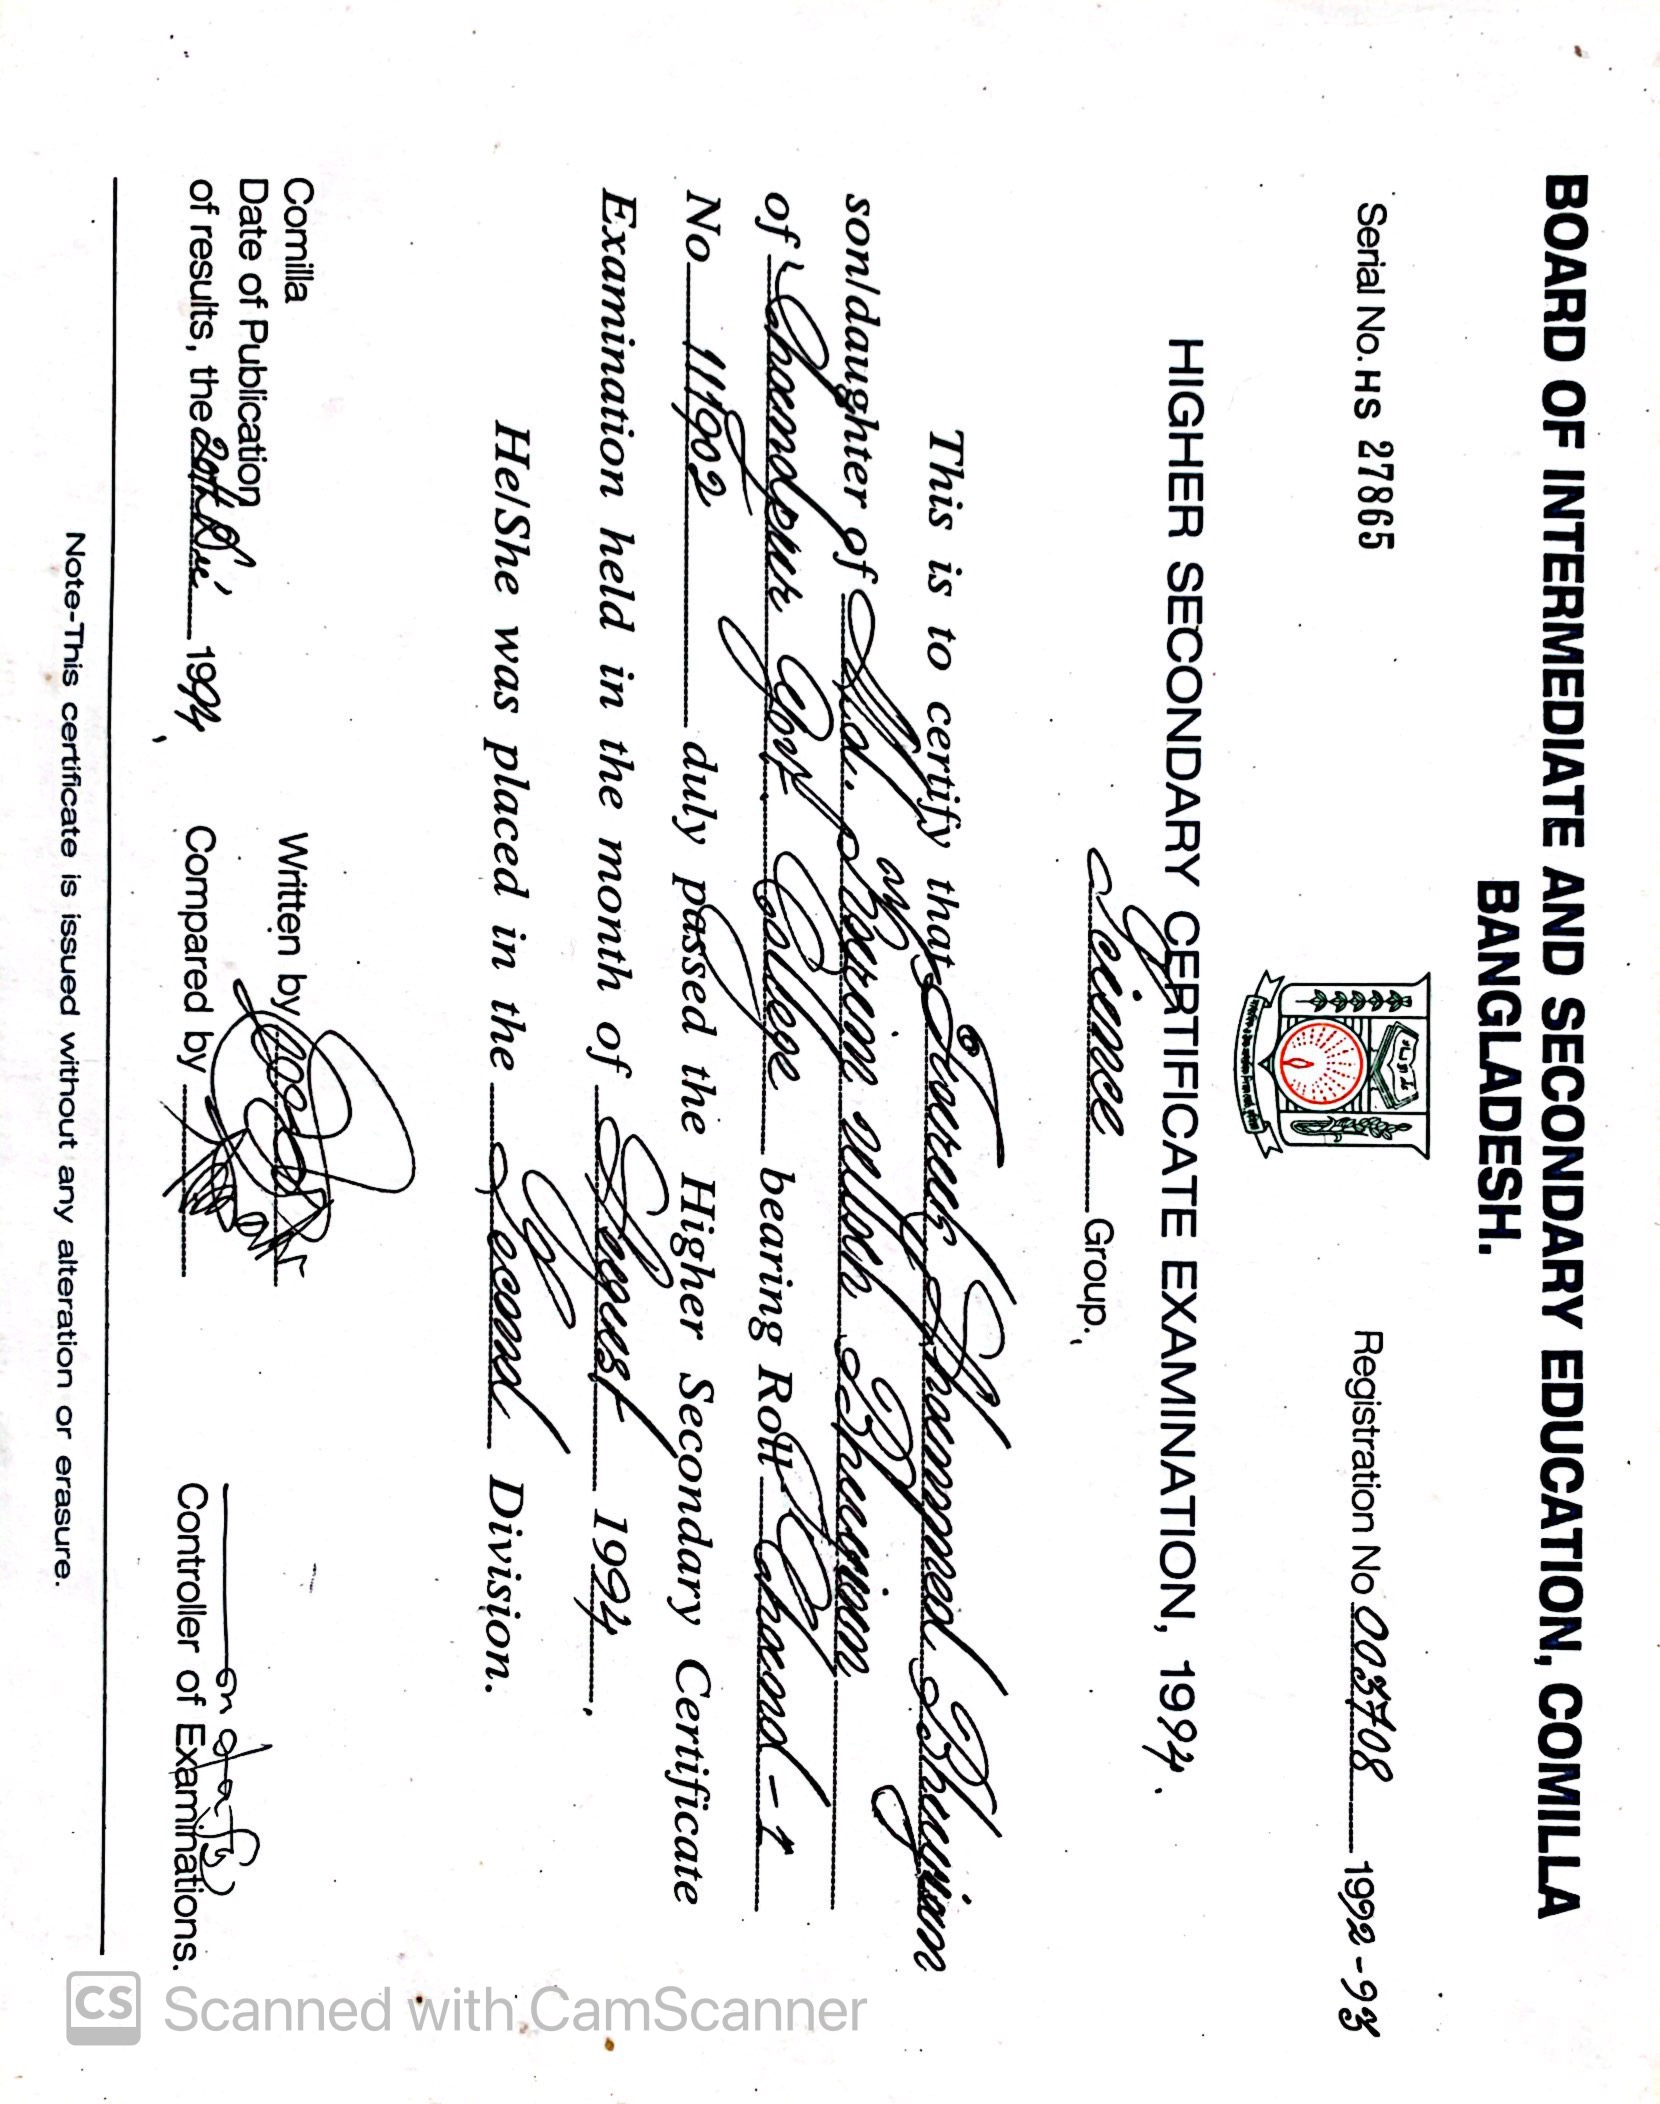 BOARD OF INTERMEDIATE AND SECONDARY EDUCATION, COMILLA
BANGLADESH.
Serial No. HS 27865
Registration No 003708 1992-93
HIGHER SECONDARY CERTIFICATE EXAMINATION, 1994.
Science Group.
This is to certify that Ahammed Bhuyian
son/daughter of Md. Karim ullah Bhuyian
of Chandpur Govt. College bearing Roll Chand-1
No 111902 duly passed the Higher Secondary Certificate
Examination held in the month of August 1994.
He/She was placed in the Second Division.
Comilla
Date of Publication
of results, the 20th Dec' 1994,
Written by
Compared by
Controller of Examinations.
Note-This certificate is issued without any alteration or erasure.
CS Scanned with CamScanner